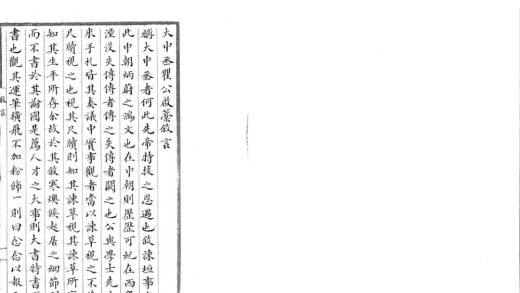 大中丞瞿公啟藁敘言
稱大中丞者何此先帝特拔之恩遇也敘諫垣事
此中朝炳蔚之鴻文也在中朝則歷歷可紀在西
湮没失傳傳者傳之矣失傳者闕之也公與學士先
來手札皆其奏議中實事觀者當以諫草視之不
尺牘視之也視其尺牘則如其諫草視其諫草所
如其生平所存公故於其敘寒燠候起居之細節
而不書於其論國是薦人才之大事則大書特書
書也觀其運筆橫飛不加粉飾一則曰念念以報
敘言